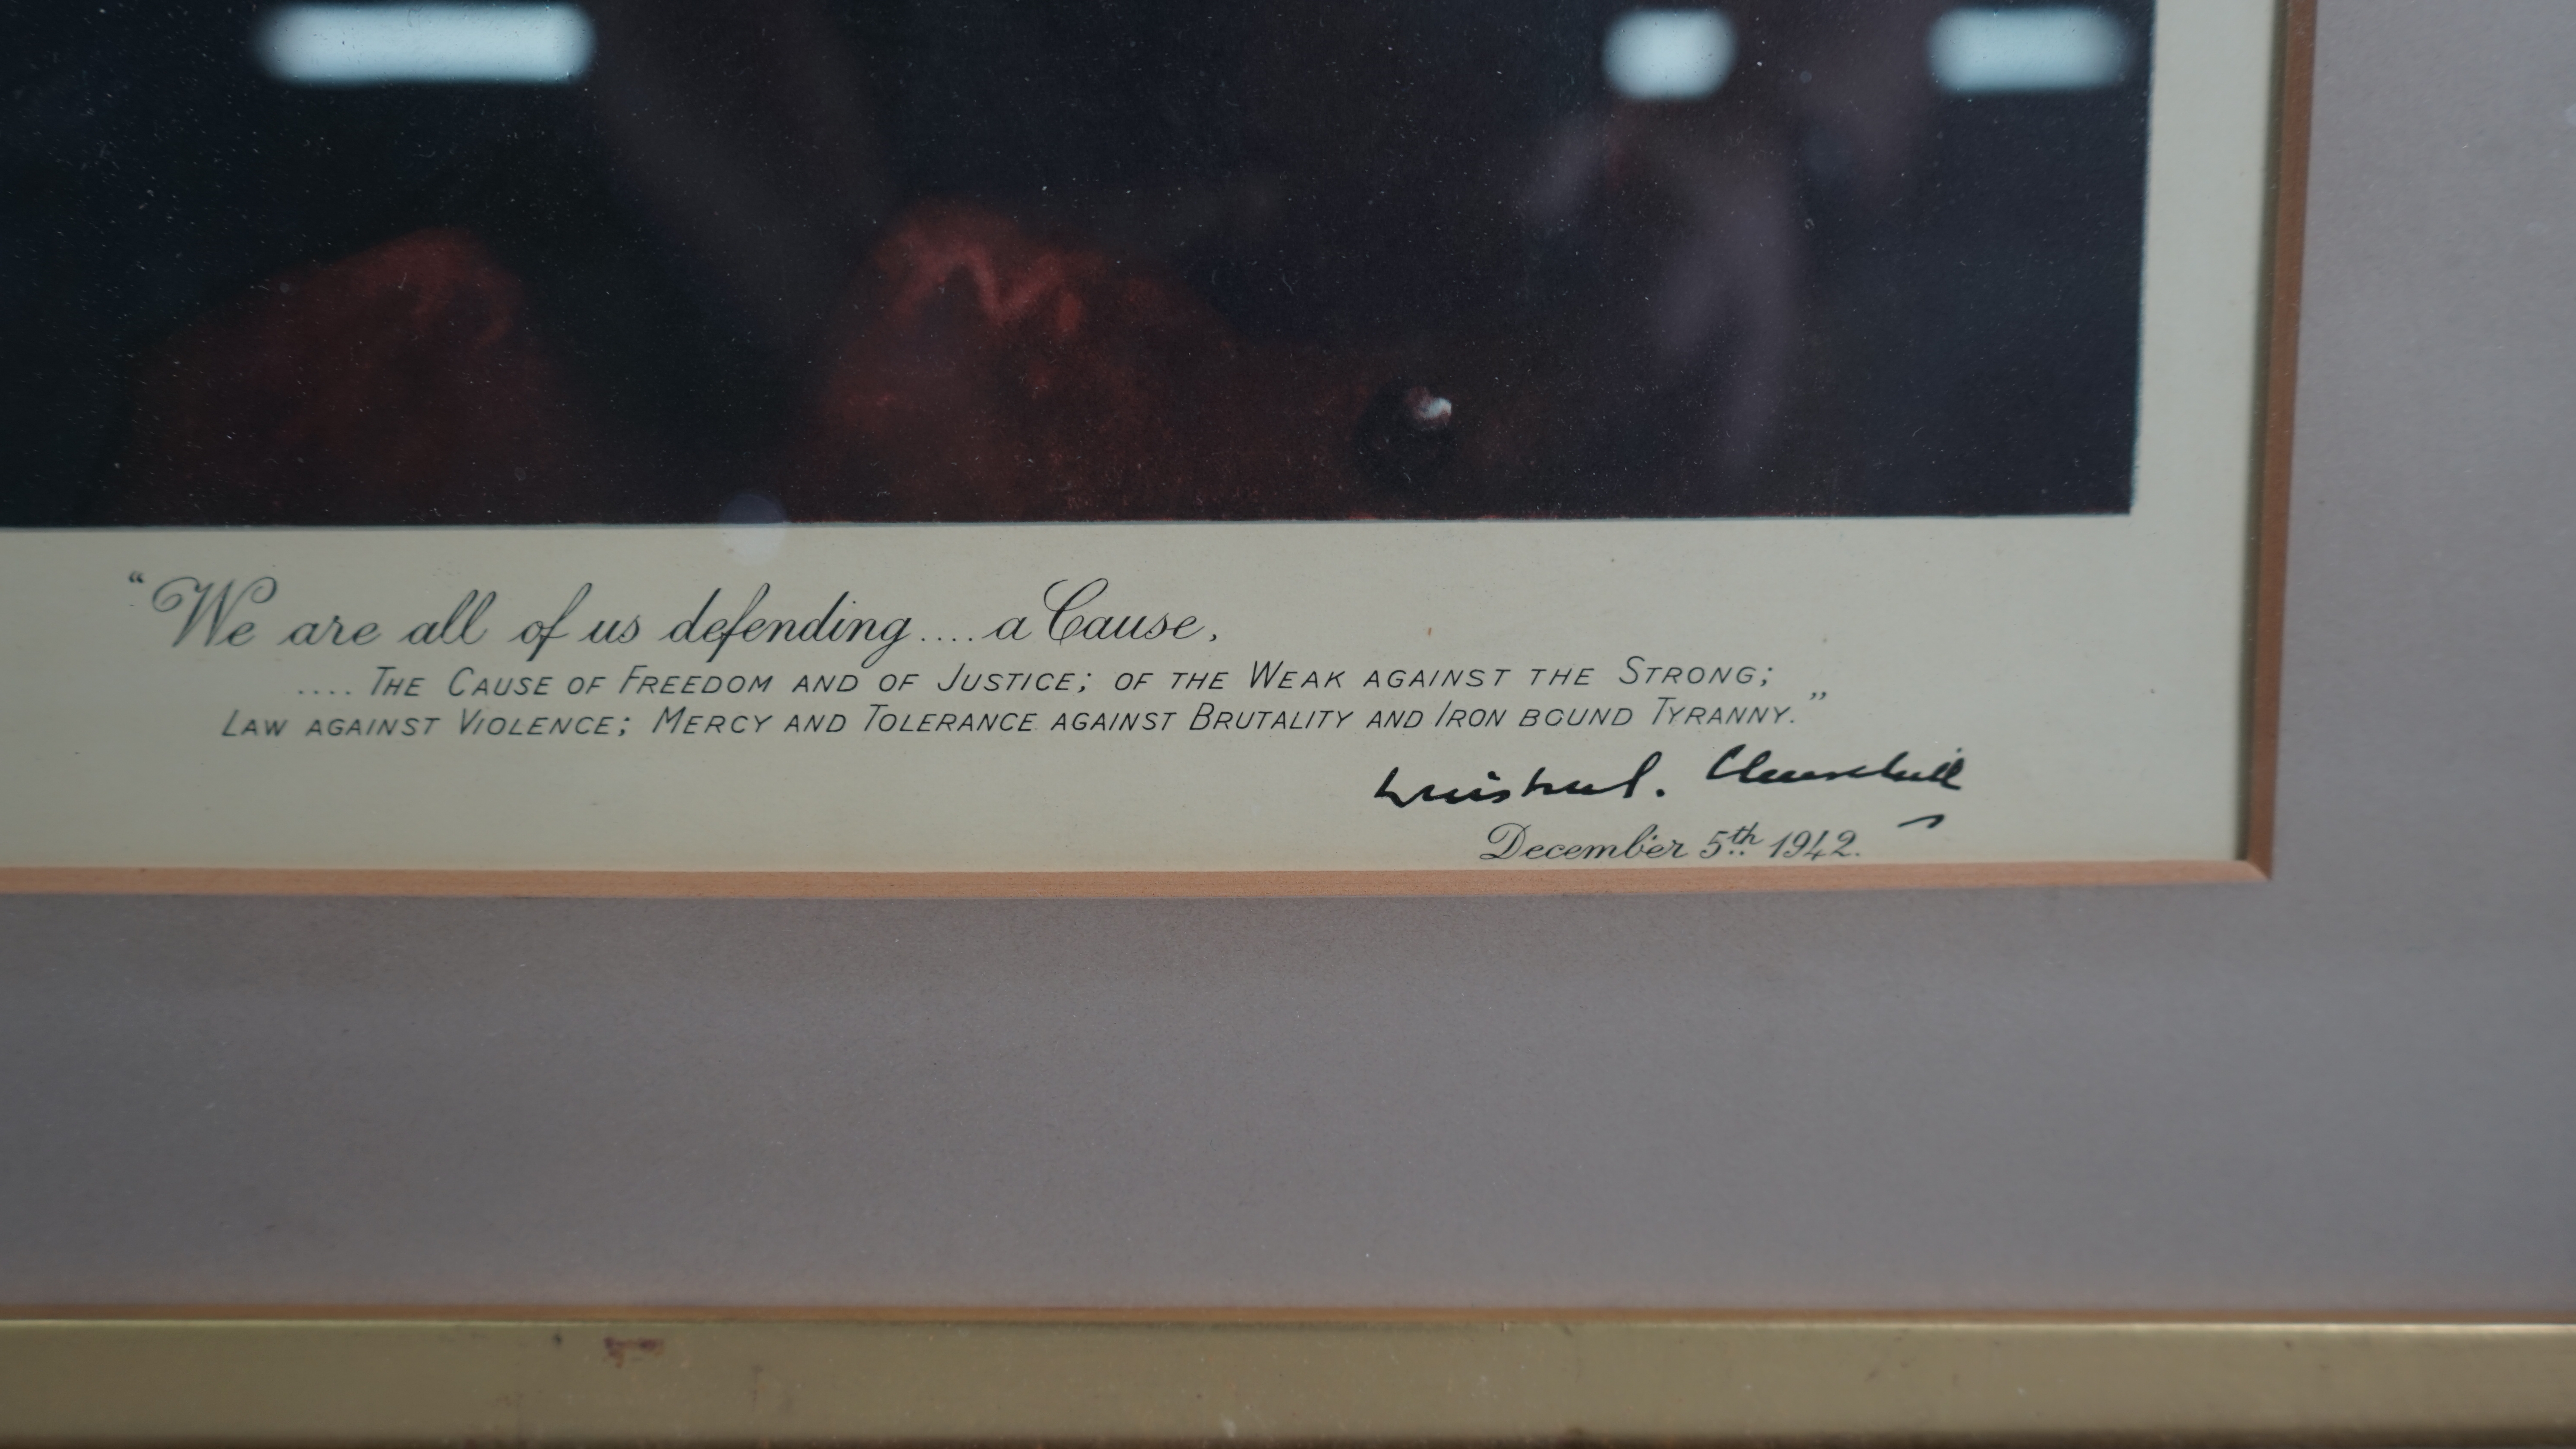 “We are all of us defending.... a Cause,
.... THE CAUSE OF FREEDOM AND OF JUSTICE; OF THE WEAK AGAINST THE STRONG;
LAW AGAINST VIOLENCE; MERCY AND TOLERANCE AGAINST BRUTALITY AND IRON BOUND TYRANNY.”
Winston S. Churchill
December 5th 1942.